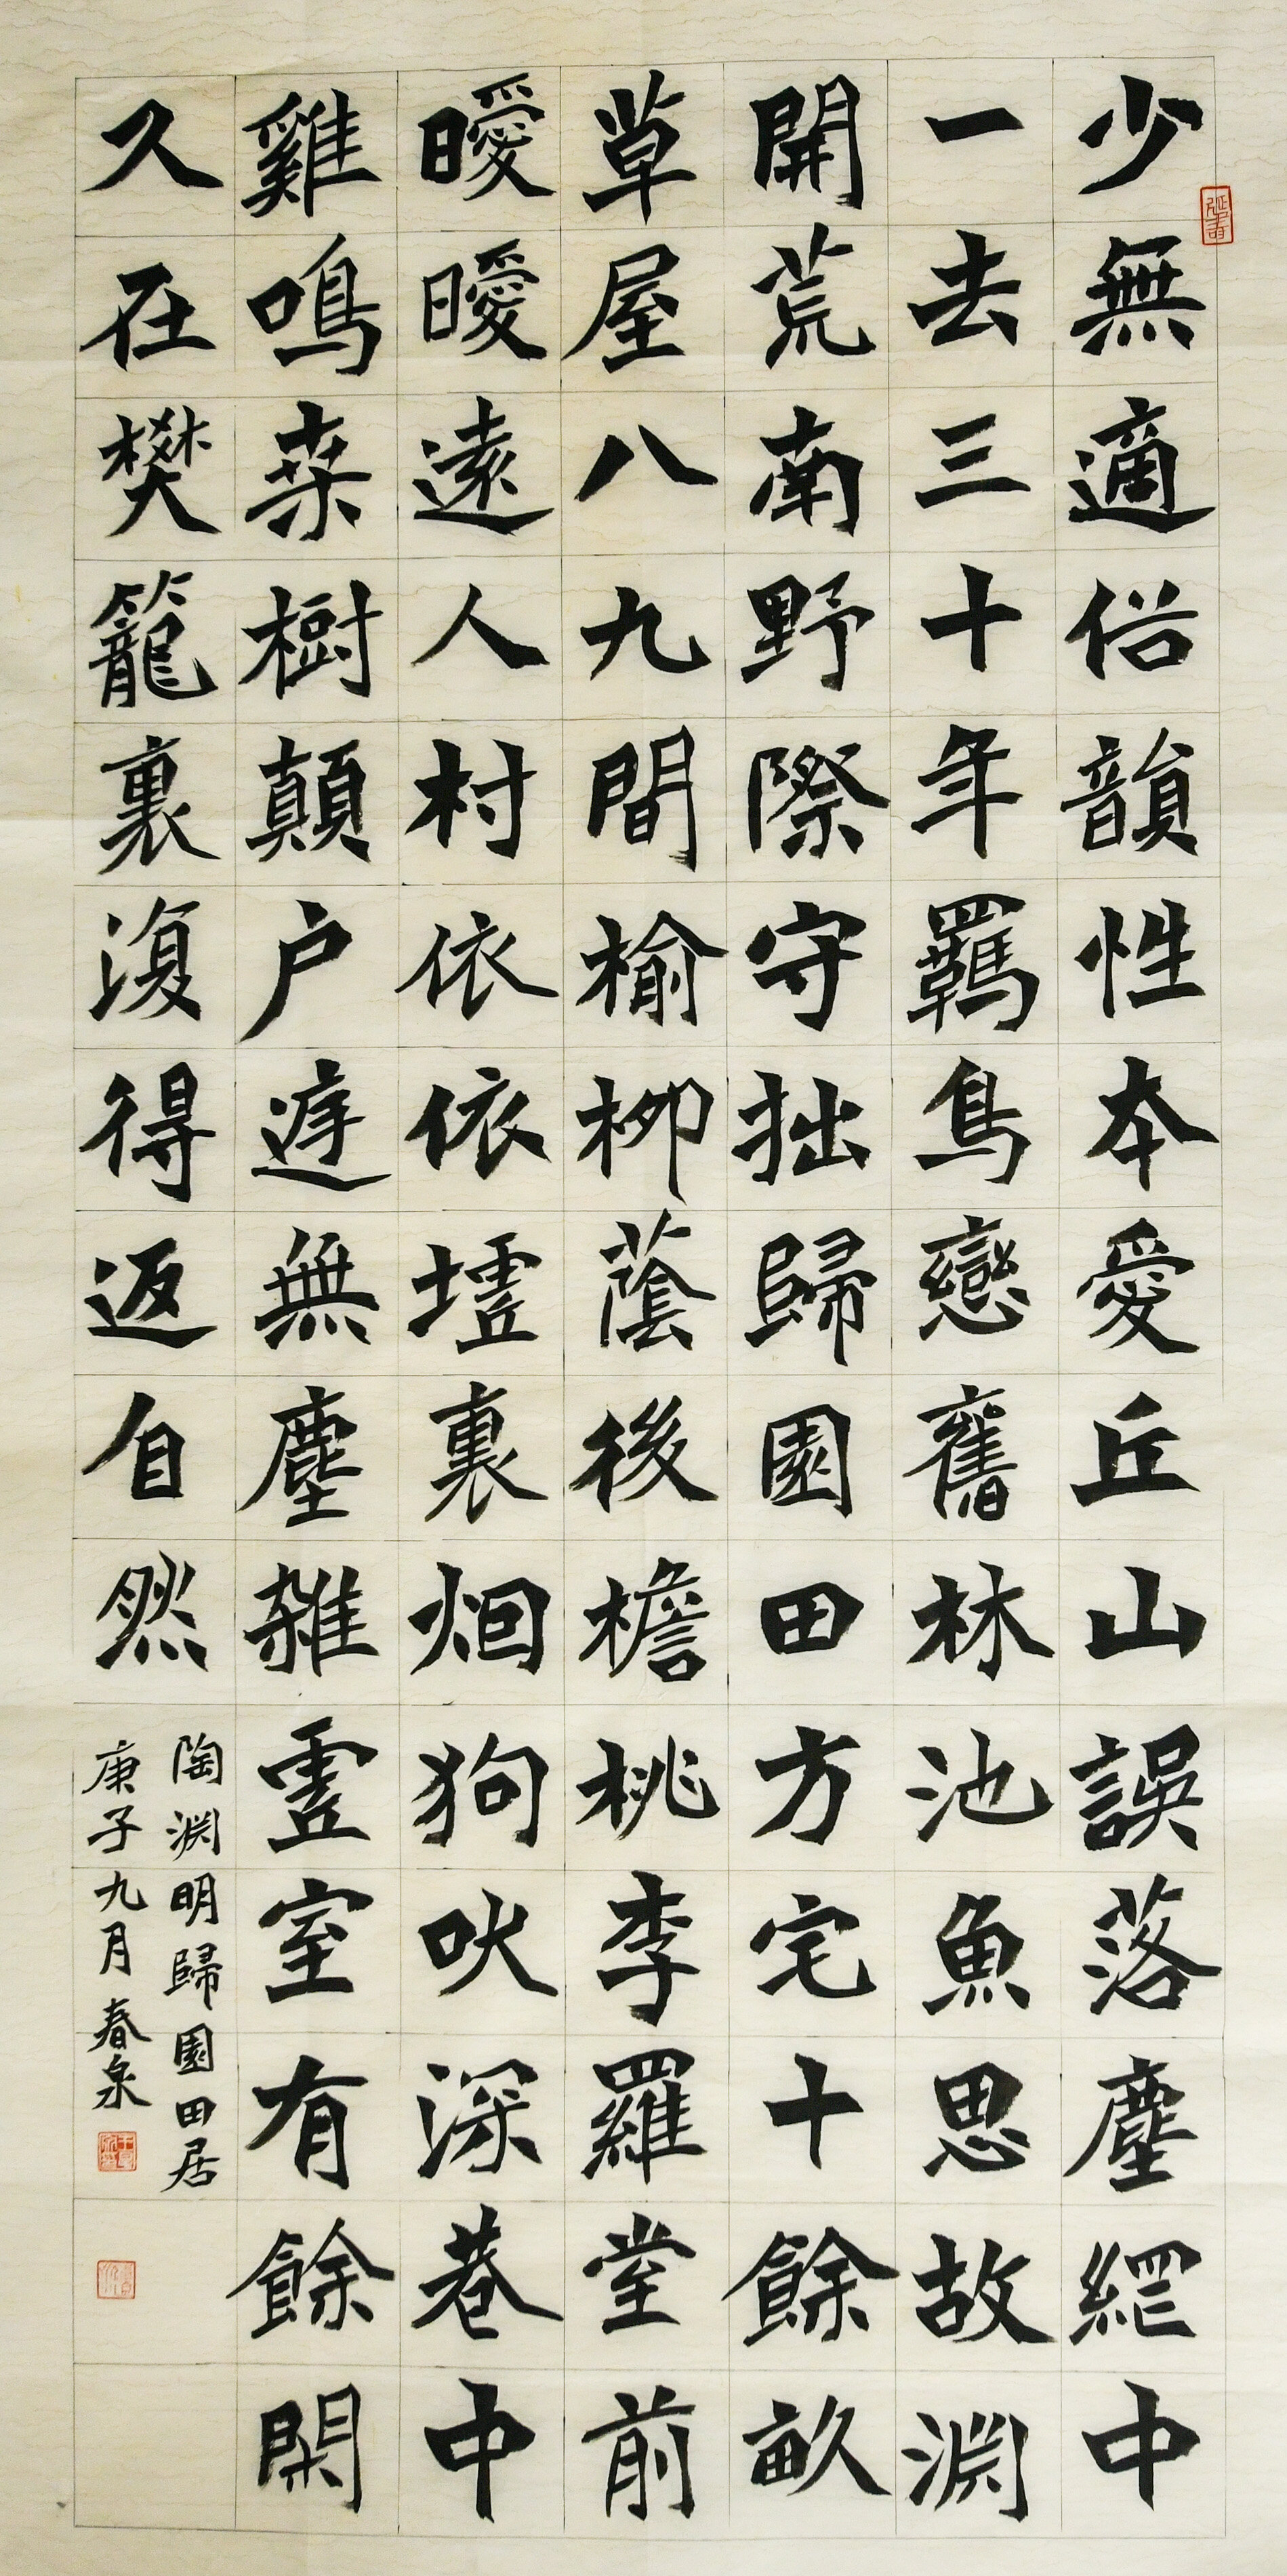 少無適俗韻性本愛丘山誤落塵網中
一去三十年羈鳥戀舊林池魚思故淵
開荒南野際守拙歸園田方宅十餘畝
草屋八九間榆柳蔭後檐桃李羅堂前
曖曖遠人村依依墟裏烟狗吠深巷中
雞鳴桒樹顛户庭無塵雜虛室有餘閑
久在樊籠裏復得返自然
陶淵明歸園田居
庚子九月春泉